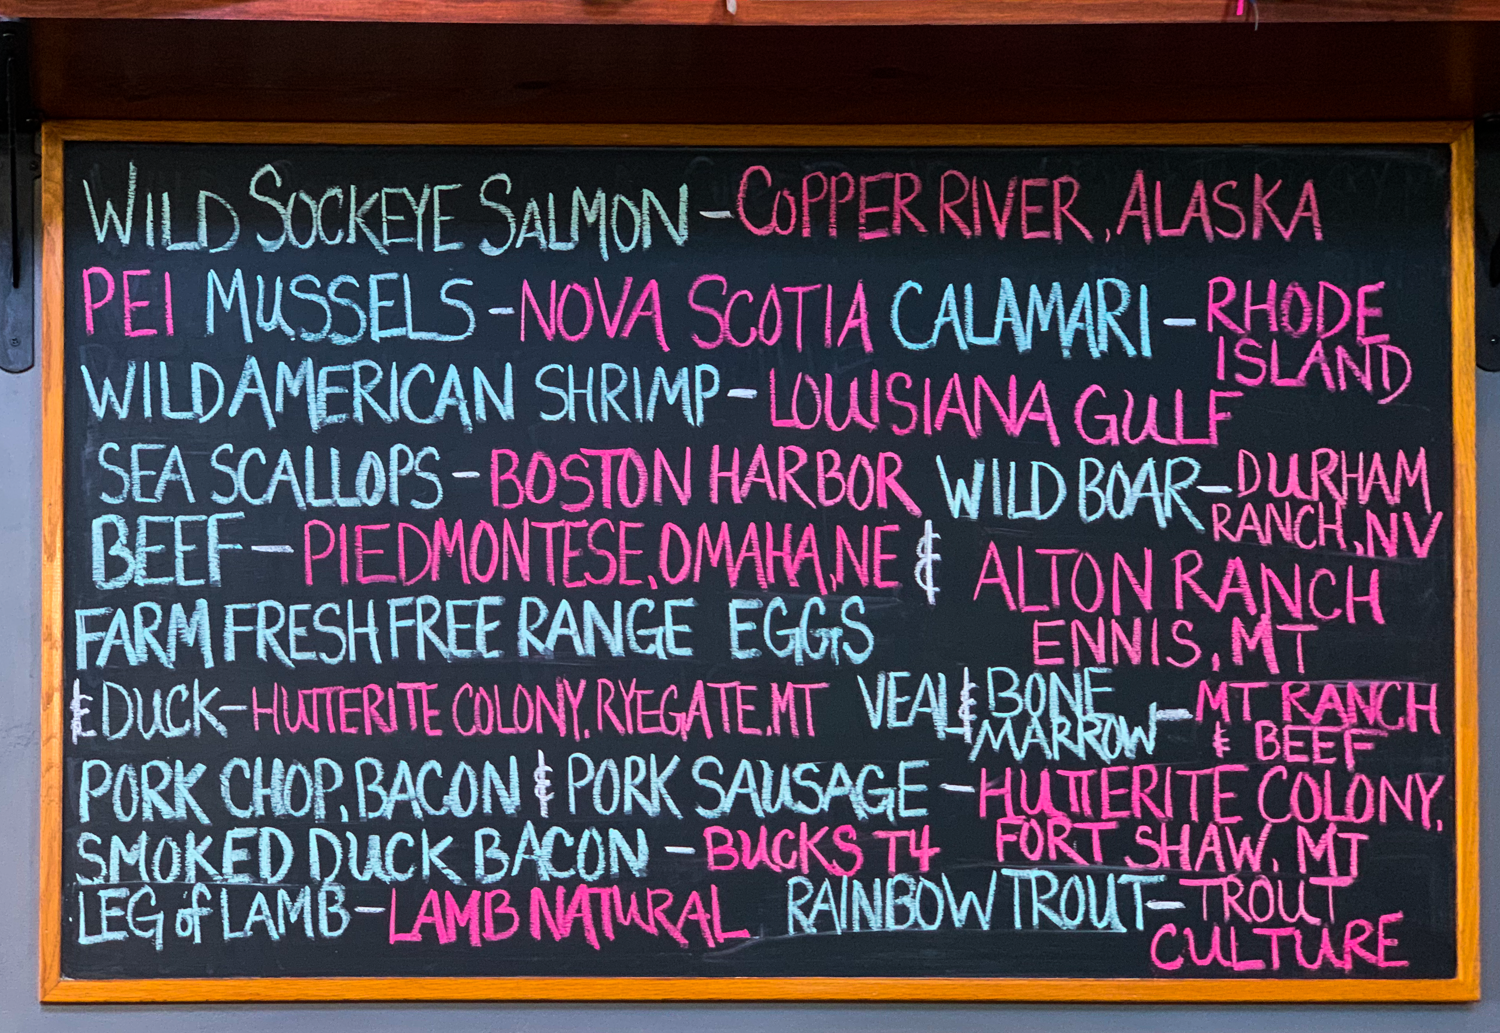 WILD SOCKEYE SALMON - COPPER RIVER, ALASKA
PEI MUSSELS - NOVA SCOTIA CALAMARI - RHODE
ISLAND
WILD AMERICAN SHRIMP - LOUISIANA GULF
SEA SCALLOPS - BOSTON HARBOR WILD BOAR - DURHAM
RANCH, NV
BEEF - PIEDMONTESE, OMAHA, NE & ALTON RANCH
ENNIS, MT
FARM FRESH FREE RANGE EGGS
& DUCK - HUTTERITE COLONY, RYEGATE, MT VEAL & BONE
MARROW - MT RANCH
& BEEF
PORK CHOP, BACON & PORK SAUSAGE - HUTTERITE COLONY,
FORT SHAW, MT
SMOKED DUCK BACON - BUCKS T4
LEG of LAMB - LAMB NATURAL RAINBOW TROUT - TROUT
CULTURE